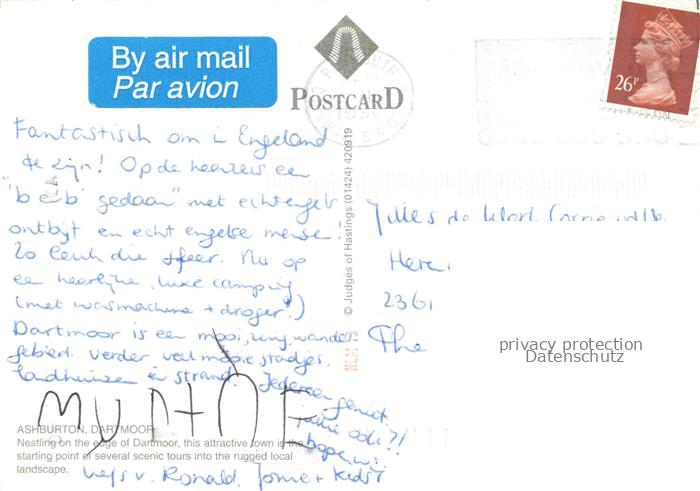 By air mail
Par avion
POSTCARD
26P
Fantastisch om in Engeland
te zijn! Op de heenreis een
"b & b" gedaan" met echt engels
ontbijt en echt engelse mensen!
Zo leuk die sfeer. Nu op
een heerlijke, luxe camping
(met wasmachine + droger!)
Dartmoor is een mooi, ruig wandel
gebied. verder veel mooie stadjes.
landhuizen en strand. Iedereen geniet.
jullie ook?!
hopen wij
liefs v. Ronald, + kids
Jilles de
Here
2361
The
© Judges of Hastings (01424) 420919
privacy protection
Datenschutz
ASHBURTON, DARTMOOR
Nestling on the edge of Dartmoor, this attractive town is the
starting point of several scenic tours into the rugged local
landscape.